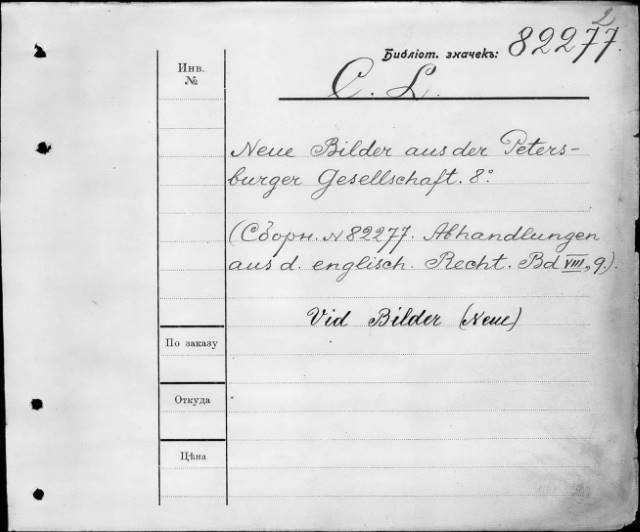 2
Библіот. значекъ: 82277.
Инв.
№
C. L.
Neue Bilder aus der Peters-
burger Gesellschaft. 8°
(Сборн. N 82277. Abhandlungen
aus d. englisch. Recht. Bd VIII, 9.).
Vid Bilder (Neue)
По заказу
Откуда
Цѣна